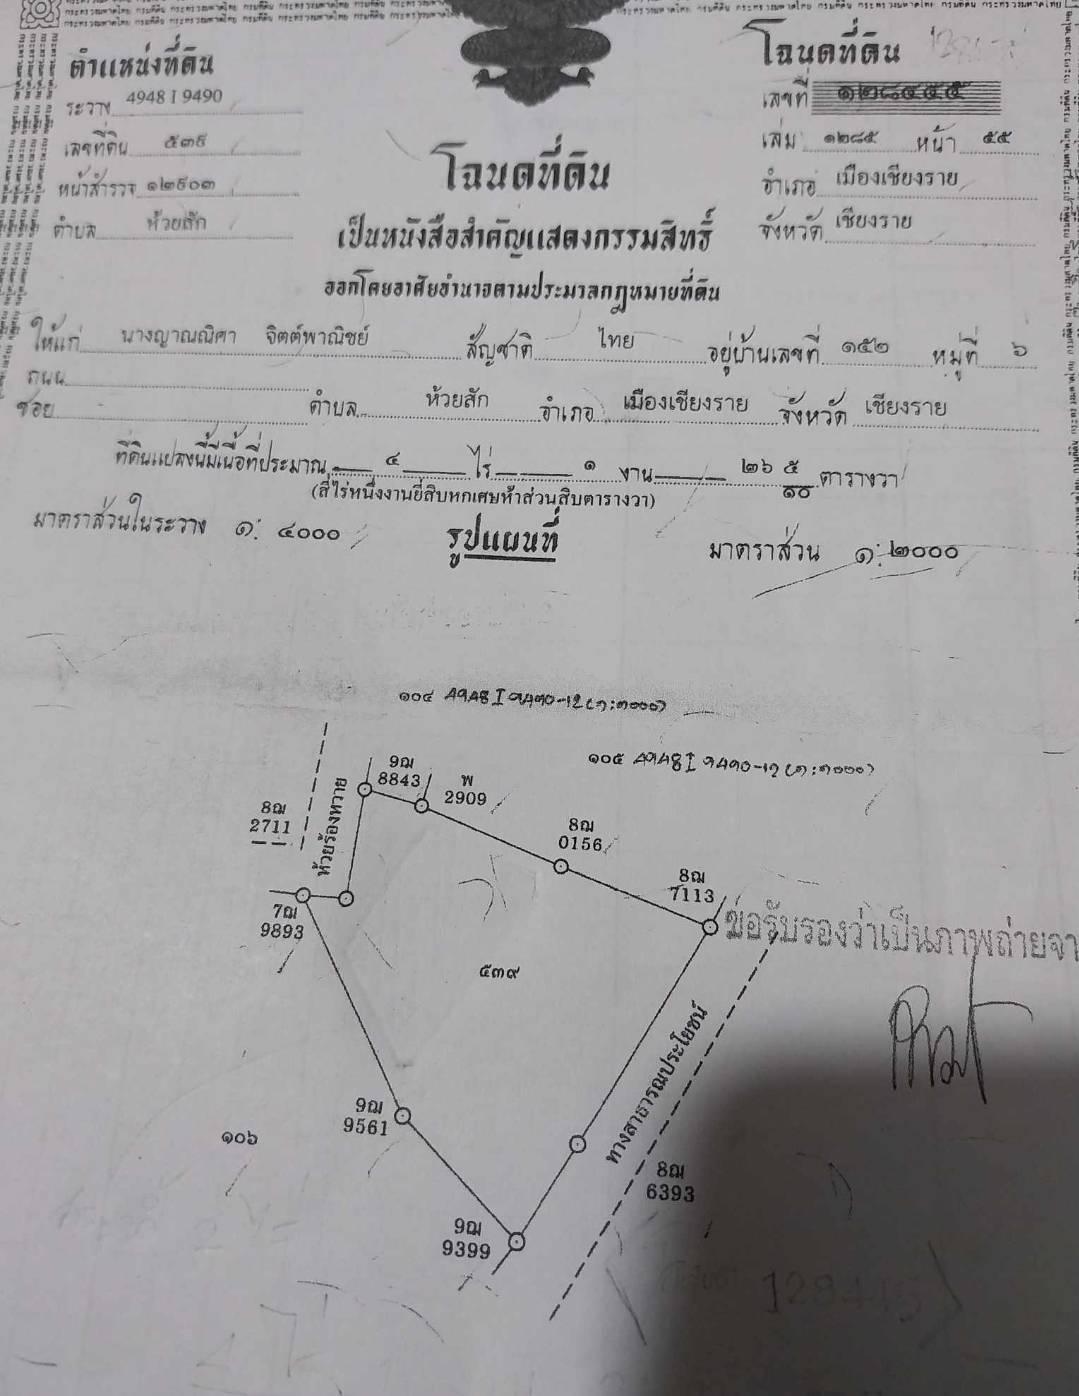 ตำแหน่งที่ดิน
ระวาง 4948 I 9490
เลขที่ดิน ๕๓๙
หน้าสำรวจ ๑๒๙๐๓
ตำบล ห้วยสัก
โฉนดที่ดิน
เลขที่ ๑๒๘๔๕๕
เล่ม ๑๒๘๕ หน้า ๕๕
อำเภอ เมืองเชียงราย
จังหวัด เชียงราย
โฉนดที่ดิน
เป็นหนังสือสำคัญแสดงกรรมสิทธิ์
ออกโดยอาศัยอำนาจตามประมวลกฎหมายที่ดิน
ให้แก่ นางญาณณิศา จิตต์พาณิชย์ สัญชาติ ไทย อยู่บ้านเลขที่ ๑๕๒ หมู่ที่ ๖
ถนน
ซอย ตำบล ห้วยสัก อำเภอ เมืองเชียงราย จังหวัด เชียงราย
ที่ดินแปลงนี้มีเนื้อที่ประมาณ ๔ ไร่ ๑ งาน ๒๖ ๕/๑๐ ตารางวา
(สี่ไร่หนึ่งงานยี่สิบหกเศษห้าส่วนสิบตารางวา)
มาตราส่วนในระวาง ๑: ๔๐๐๐
รูปแผนที่
มาตราส่วน ๑: ๒๐๐๐
๑๐๔
๑๐๕
9ฌ
8843
พ
2909
8ฌ
2711
ห้วยร้องหวาย
8ฌ
0156
8ฌ
7113
7ฌ
9893
ข่อรับรองว่าเป็นภาพถ่ายจา
๕๓๙
ทางสาธารณประโยชน์
9ฌ
9561
๑๐๖
8ฌ
6393
9ฌ
9399